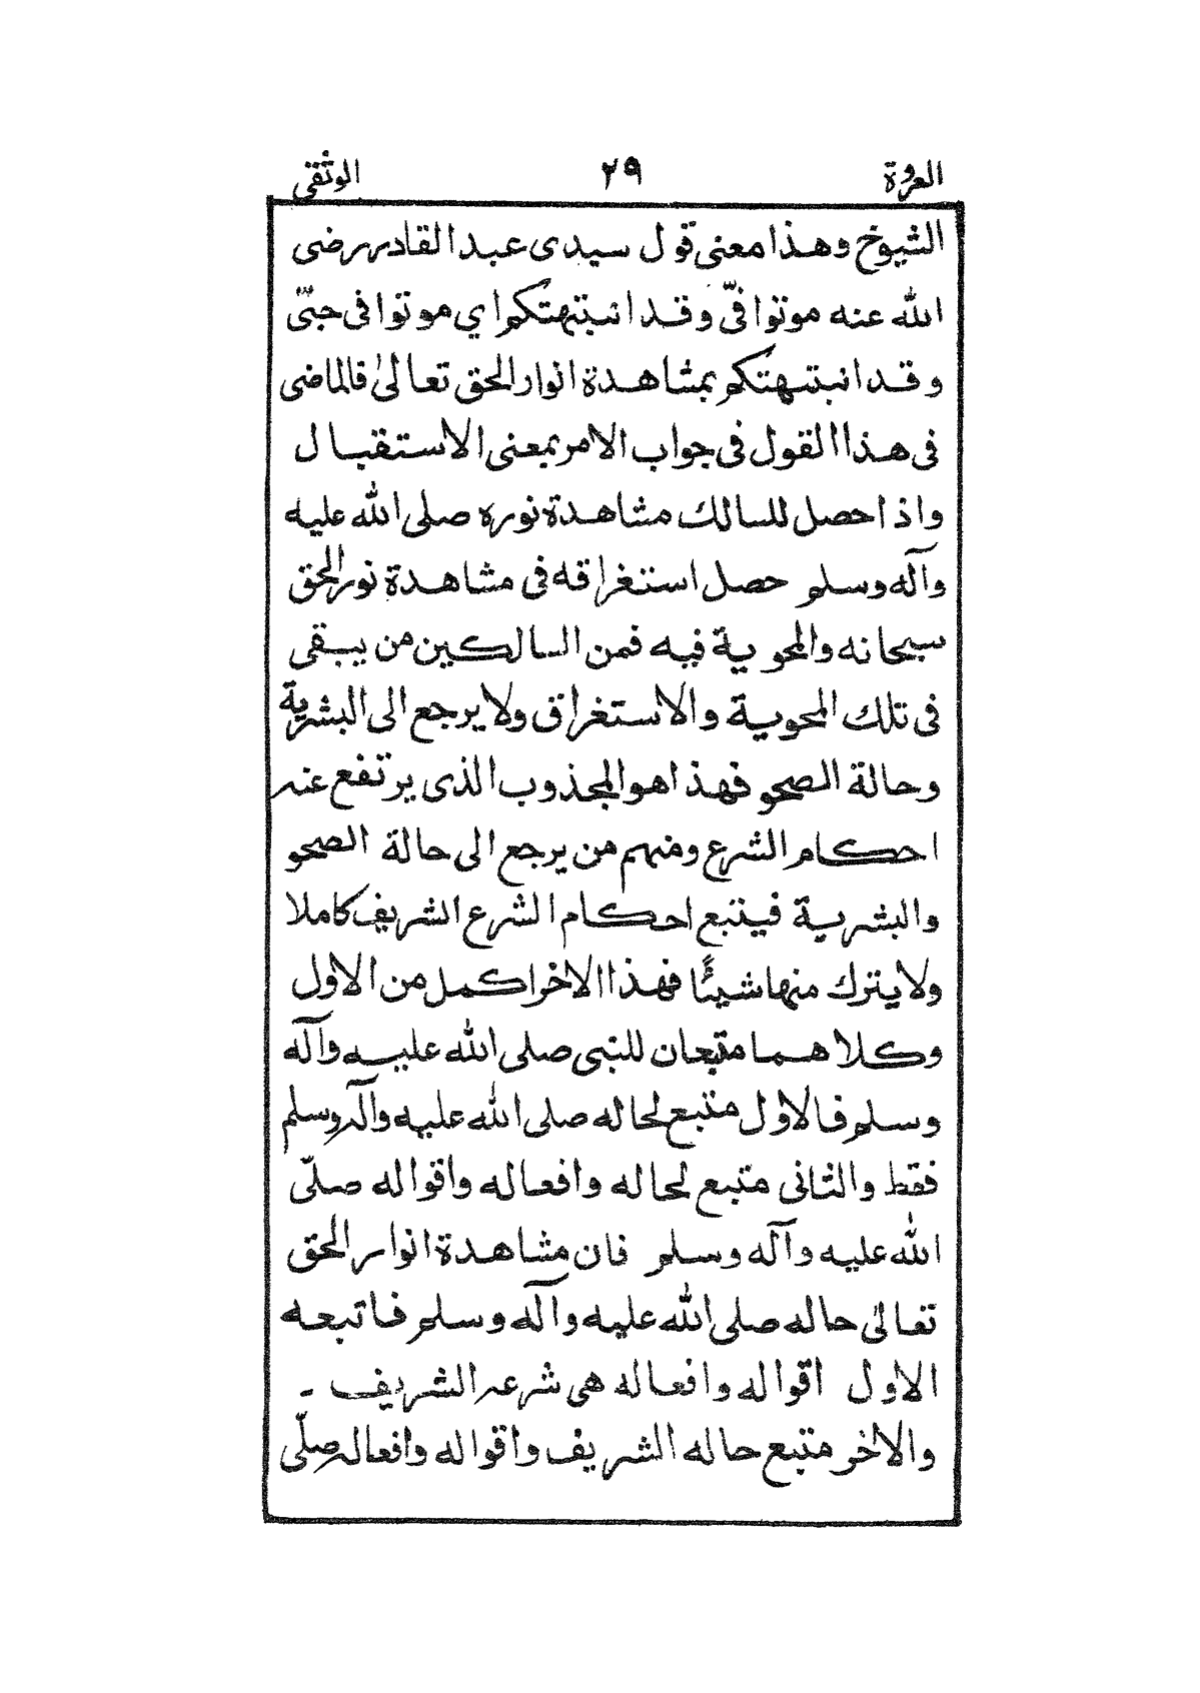 العروة ٢٩ الوثقى
الشيوخ وهذا معنى قول سيدى عبد القادر رضى
الله عنه موتوا فىّ وقد انبتهتكم اي موتوا فى حبّى
وقد انبتهتكم بمشاهدة انوار الحق تعالىٰ فالماضى
فى هذا القول فى جواب الامر بمعنى الاستقبال
واذا حصل للسالك مشاهدة نوره صلى الله عليه
وآله وسلم حصل استغراقه فى مشاهدة نور الحق
سبحانه والمحوية فيه فمن السالكين من يبقى
فى تلك المحوية والاستغراق ولا يرجع الى البشرية
وحالة الصحو فهذا هو المجذوب الذى يرتفع عنه
احكام الشرع ومنهم من يرجع الى حالة الصحو
والبشرية فيتبع احكام الشرع الشريف كاملا
ولا يترك منها شيئًا فهذا الاخر اكمل من الاول
وكلاهما متبعان للنبى صلى الله عليه وآله
وسلم فالاول متبع لحاله صلى الله عليه وآله وسلم
فقط والثانى متبع لحاله وافعاله واقواله صلّى
الله عليه وآله وسلم فان مشاهدة انوار الحق
تعالىٰ حاله صلى الله عليه وآله وسلم فاتبعه
الاول اقواله وافعاله هى شرعه الشريف -
والاخر متبع حاله الشريف واقواله وافعاله صلّى